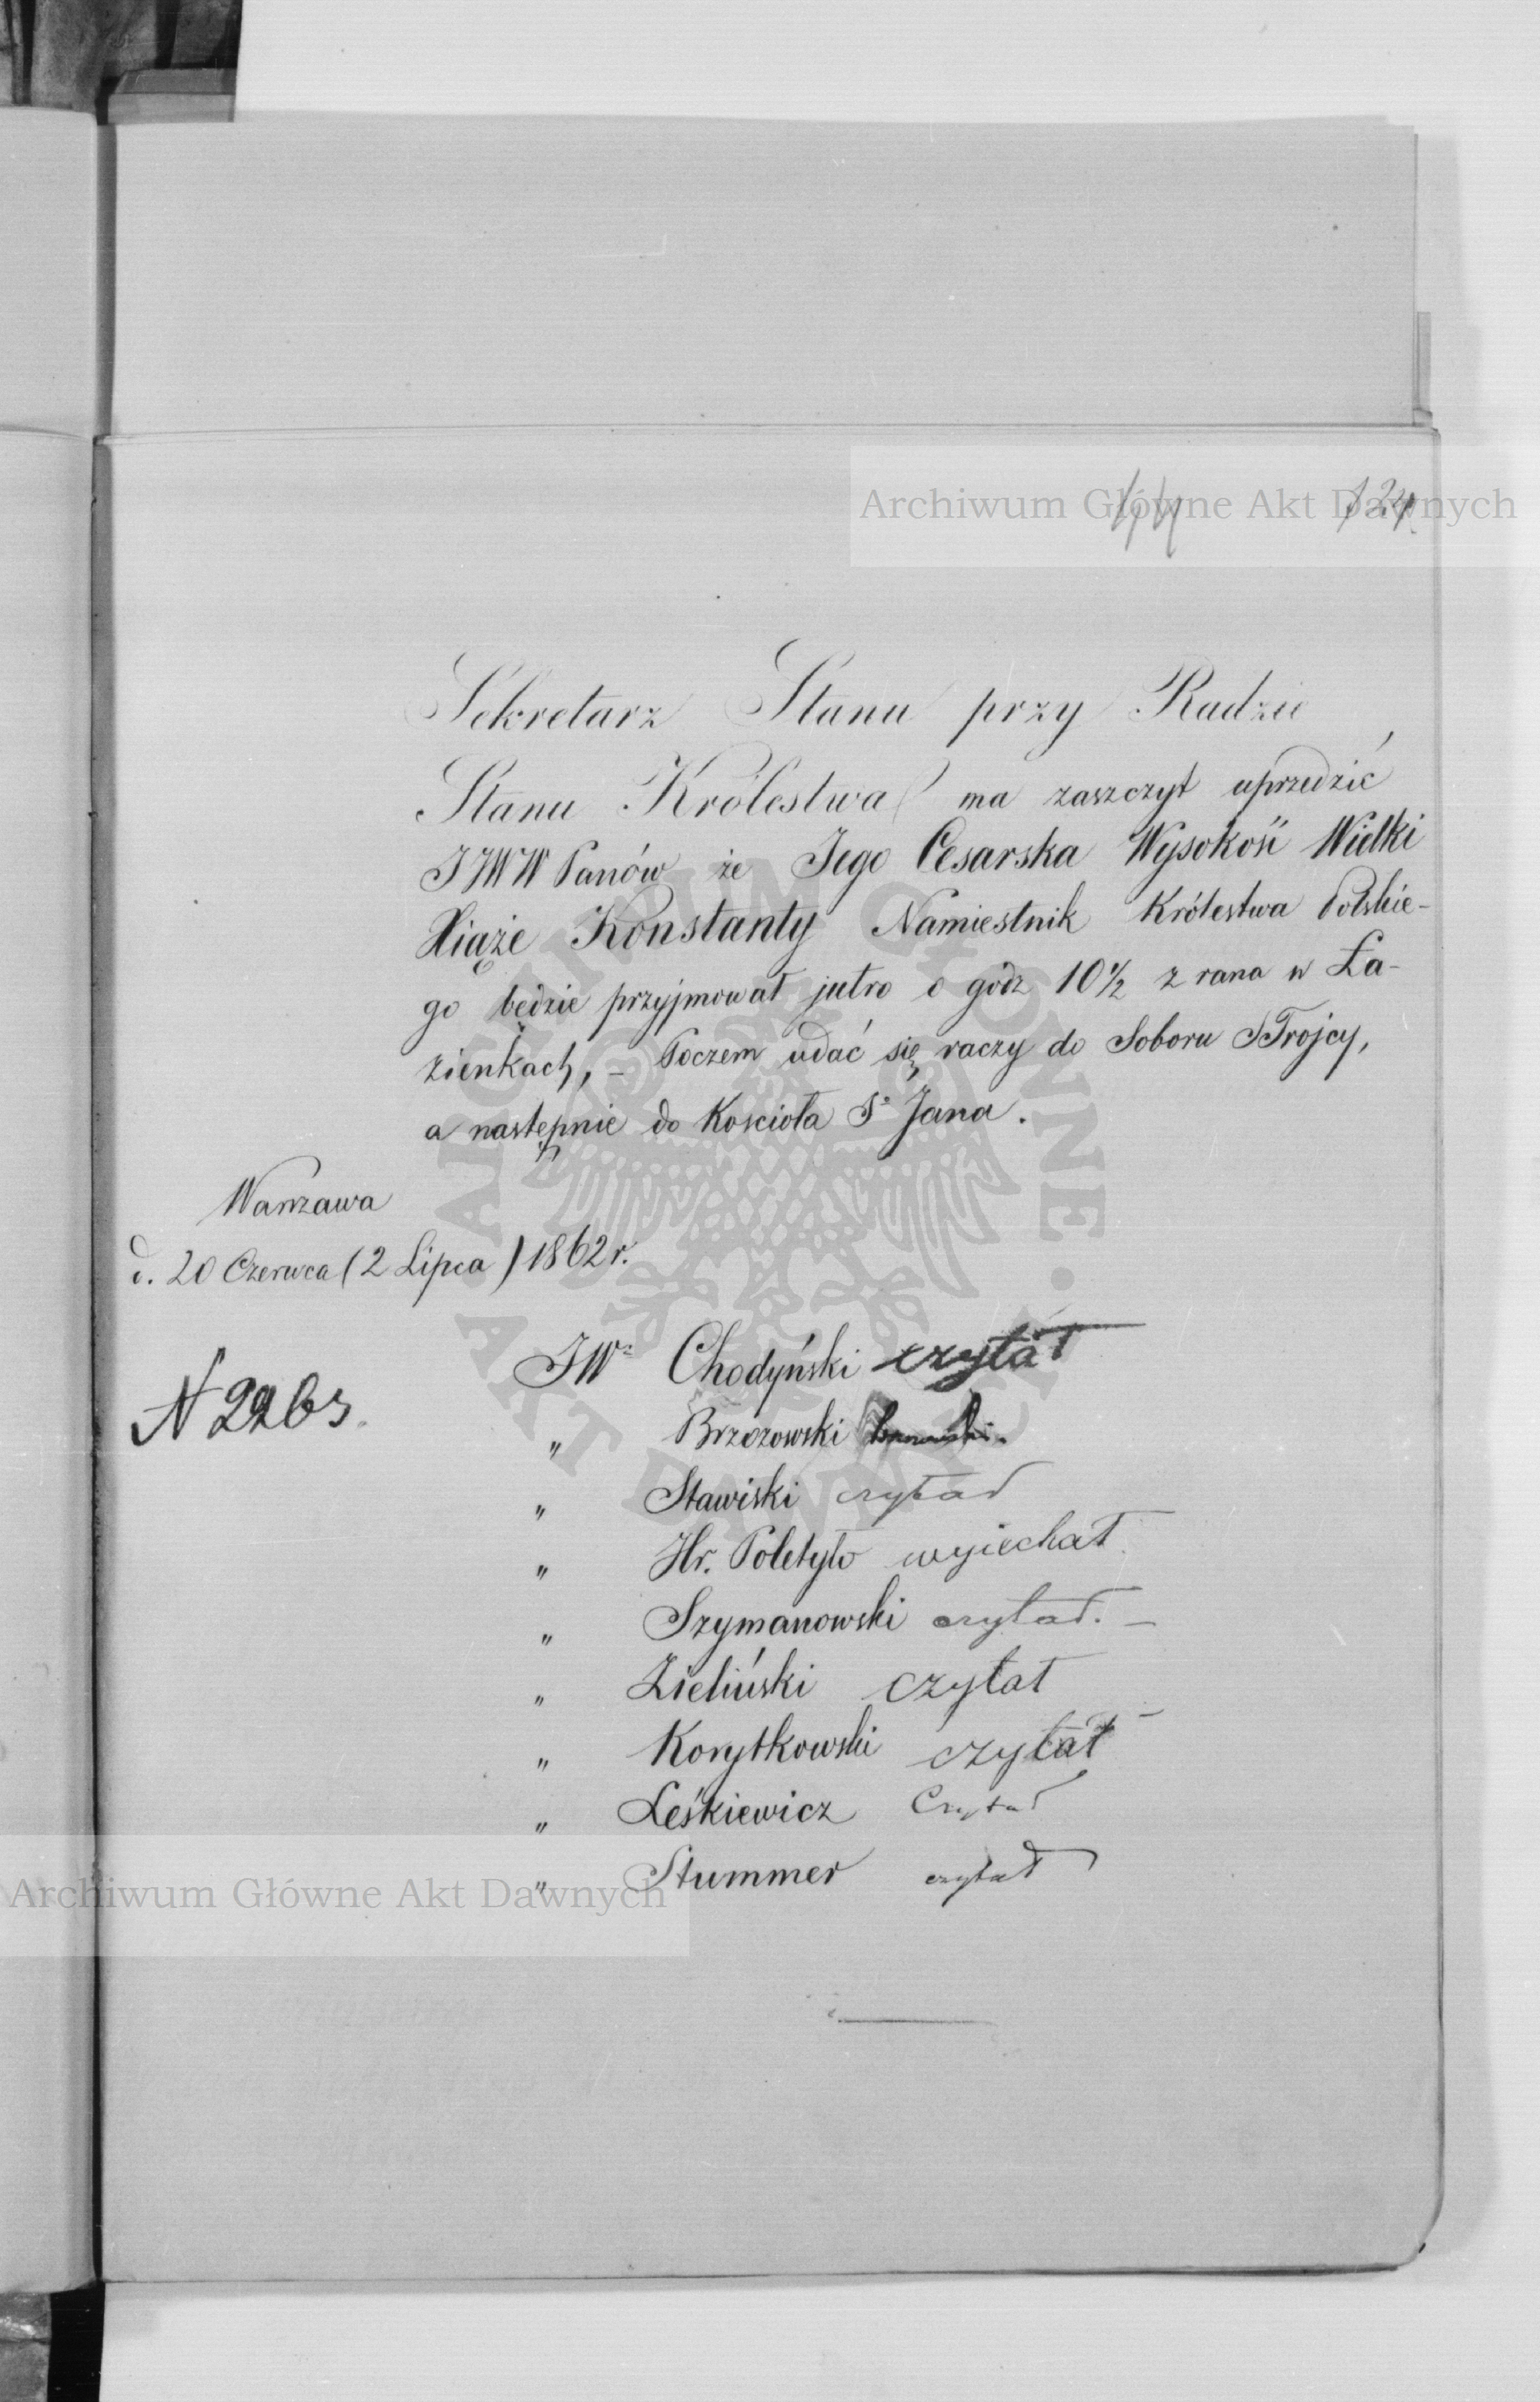 Archiwum Główne Akt Dawnych
124
Sekretarz Stanu przy Radzie
Stanu Królestwa ma zaszczyt uprzedzić
JJWW Panów że Jego Cesarska Wysokość Wielki
Xiąże Konstanty Namiestnik Królestwa Polskie-
go będzie przyjmował jutro o godz 10½ z rana w Ła-
zienkach, – Poczem udać się raczy do Soboru STrojcy,
a następnie do Kościoła Sº Jana.
Warszawa
d. 20 Czerwca (2 Lipca) 1862 r.
JW: Chodyński czytał
N 2263.
„ Brzozowski
„ Stawiski czytał
„ Hr. Poletyło wyiechał
„ Szymanowski czytał. –
„ Zieliński czytał
„ Korytkowski czytał
„ Leśkiewicz Czytał
„ Stummer czytał
Archiwum Główne Akt Dawnych
ARCHIWUM GŁÓWNE AKT DAWNYCH